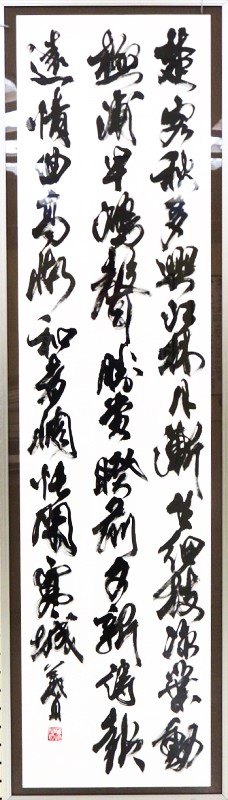 楚客秋多興江林月漸生細枝涼葉動
極浦早鴻聲勝賞睽前夕新詩報
遠情曲高慚和者惆悵閉寒城